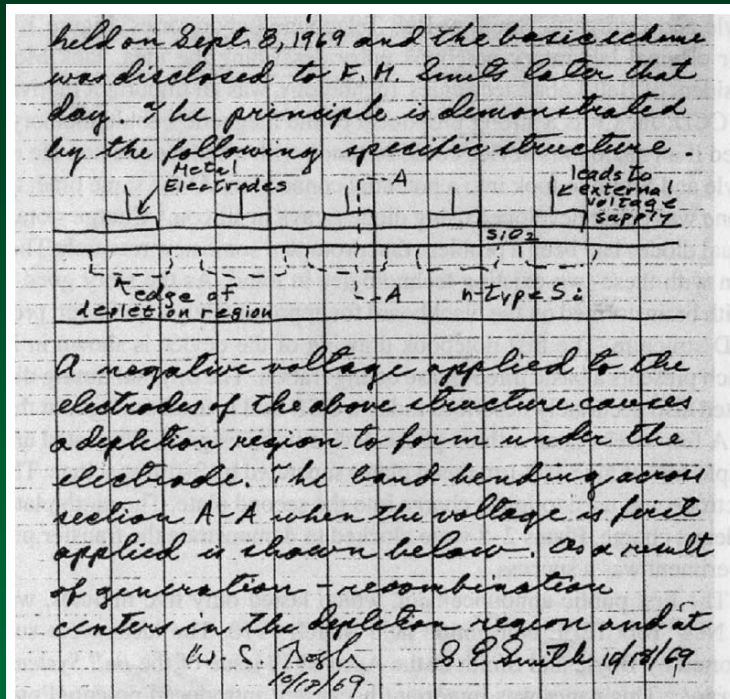 held on Sept. 8, 1969 and the basic scheme
was disclosed to F. M. Smits later that
day. The principle is demonstrated
by the following specific structure.
Metal
Electrodes
A
leads to
external
voltage
supply
SiO2
edge of
depletion region
A
n-type Si
A negative voltage applied to the
electrodes of the above structure causes
a depletion region to form under the
electrode. The band bending across
section A-A when the voltage is first
applied is shown below. As a result
of generation - recombination
centers in the depletion region and at
W. S. G. E. Smith 10/18/69
10/18/69